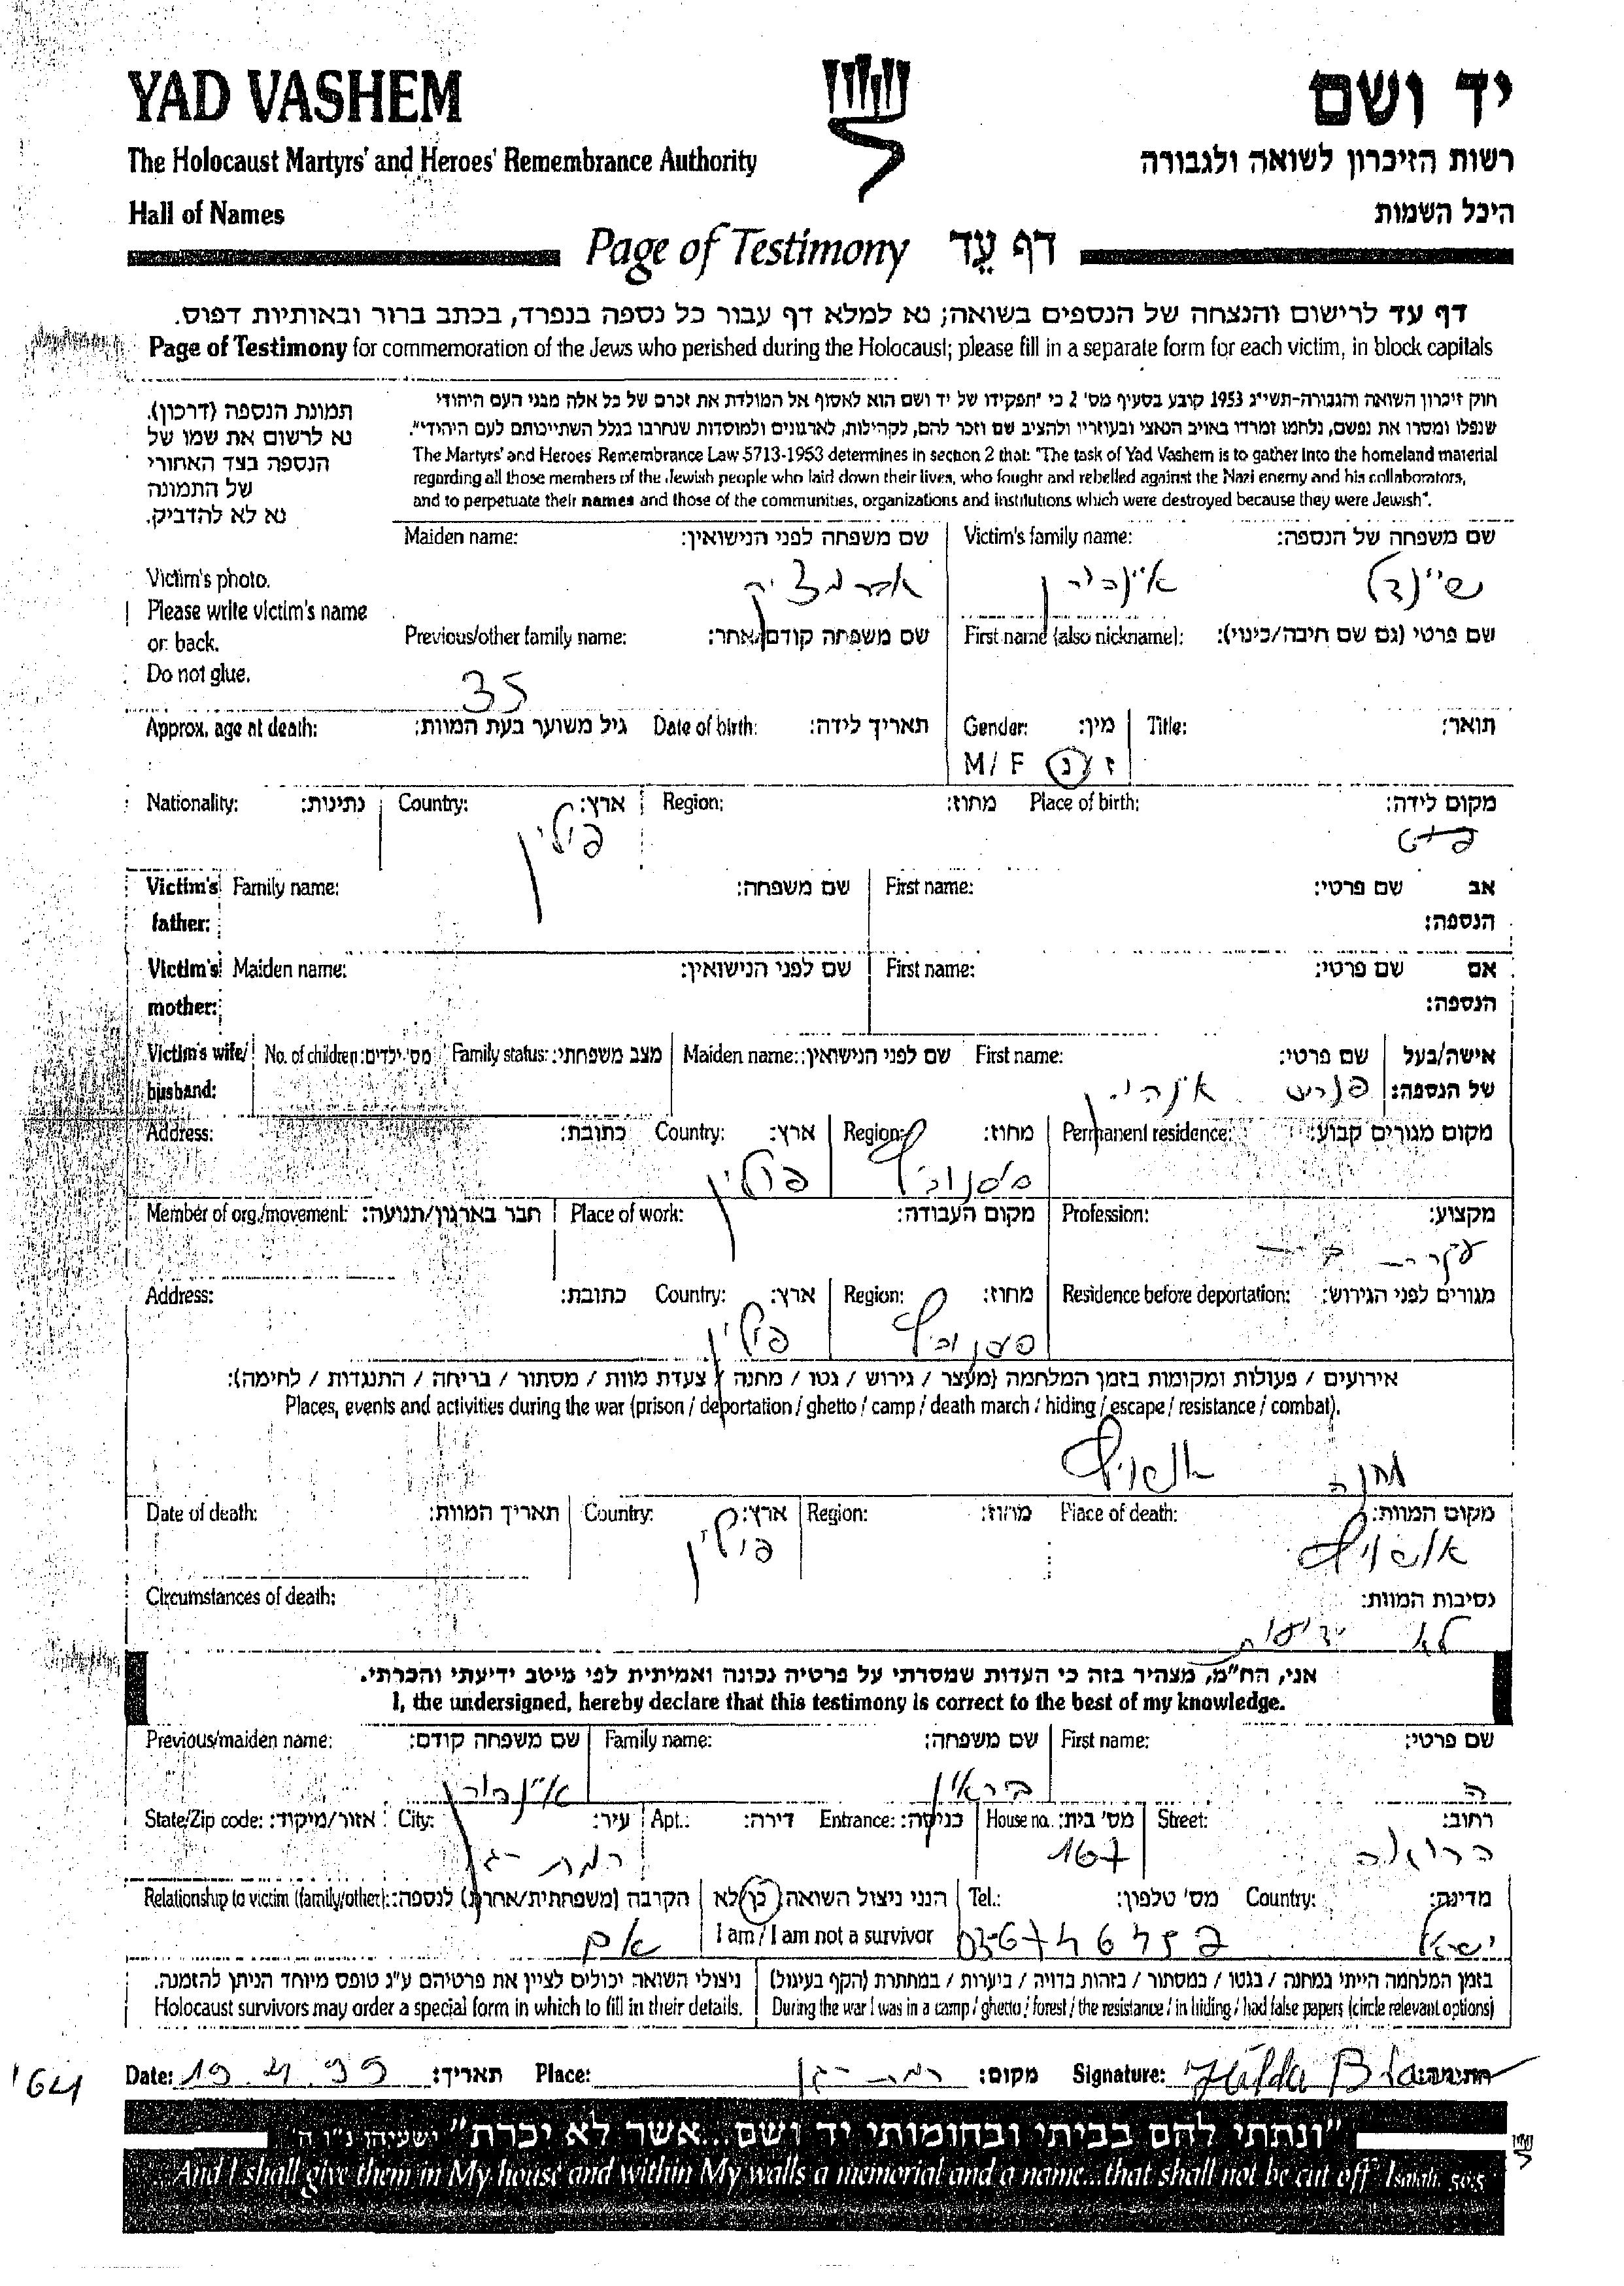 YAD VASHEM
יד ושם
The Holocaust Martyrs' and Heroes' Remembrance Authority
רשות הזיכרון לשואה ולגבורה
Hall of Names
היכל השמות
Page of Testimony דף עֵד
דף עד לרישום והנצחה של הנספים בשואה; נא למלא דף עבור כל נספה בנפרד, בכתב ברור ובאותיות דפוס.
Page of Testimony for commemoration of the Jews who perished during the Holocaust; please fill in a separate form for each victim, in block capitals
חוק זיכרון השואה והגבורה-תשי"ג 1953 קובע בסעיף מס' 2 כי "תפקידו של יד ושם הוא לאסוף אל המולדת את זכרם של כל אלה מבני העם היהודי
שנפלו ומסרו את נפשם, נלחמו ומרדו באויב הנאצי ובעוזריו ולהציב שם וזכר להם, לקהילות, לארגונים ולמוסדות שנחרבו בגלל השתייכותם לעם היהודי".
The Martyrs' and Heroes' Remembrance Law 5713-1953 determines in section 2 that: "The task of Yad Vashem is to gather into the homeland material
regarding all those members of the Jewish people who laid down their lives, who fought and rebelled against the Nazi enemy and his collaborators,
and to perpetuate their names and those of the communities, organizations and institutions which were destroyed because they were Jewish".
תמונת הנספה (דרכון).
נא לרשום את שמו של
הנספה בצד האחורי
של התמונה
נא לא להדביק.
Victim's photo.
Please write victim's name
on back.
Do not glue.
Victim's family name: שם משפחה של הנספה:
Maiden name: שם משפחה לפני הנישואין:
First name (also nickname): שם פרטי (גם שם חיבה/כינוי):
Previous/other family name: שם משפחה קודם/אחר:
35
Title: תואר:
Gender: מין:
M / F ז / נ
Date of birth: תאריך לידה:
Approx. age at death: גיל משוער בעת המוות:
Place of birth: מקום לידה:
Region: מחוז:
Country: ארץ:
פולין
Nationality: נתינות:
Victim's father: אב הנספה:
First name: שם פרטי:
Family name: שם משפחה:
Victim's mother: אם הנספה:
First name: שם פרטי:
Maiden name: שם לפני הנישואין:
Victim's wife/husband: אישה/בעל של הנספה:
First name: שם פרטי:
Maiden name: שם לפני הנישואין:
Family status: מצב משפחתי:
No. of children: מס' ילדים:
Permanent residence: מקום מגורים קבוע:
Region: מחוז:
Country: ארץ:
פולין
Address: כתובת:
Profession: מקצוע:
עקרת בית
Place of work: מקום העבודה:
Member of org./movement: חבר בארגון/תנועה:
Residence before deportation: מגורים לפני הגירוש:
Region: מחוז:
סוסנוביץ
Country: ארץ:
פולין
Address: כתובת:
אירועים / פעולות ומקומות בזמן המלחמה (מעצר / גירוש / גטו / מחנה / צעדת מוות / מסתור / בריחה / התנגדות / לחימה):
Places, events and activities during the war (prison / deportation / ghetto / camp / death march / hiding / escape / resistance / combat).
מחנה אושויץ
Place of death: מקום המוות:
אושויץ
Region: מחוז:
Country: ארץ:
פולין
Date of death: תאריך המוות:
Circumstances of death: נסיבות המוות:
לא ידועות
אני, הח"מ, מצהיר בזה כי העדות שמסרתי על פרטיה נכונה ואמיתית לפי מיטב ידיעתי והכרתי.
I, the undersigned, hereby declare that this testimony is correct to the best of my knowledge.
First name: שם פרטי:
ה
Family name: שם משפחה:
בראון
Previous/maiden name: שם משפחה קודם:
Street: רחוב:
הרואה
House no. מס' בית:
167
Entrance: כניסה:
Apt.: דירה:
City: עיר:
רמת-גן
State/Zip code: אזור/מיקוד:
Country: מדינה:
ישראל
Tel.: מס' טלפון:
הנני ניצול השואה: כן/לא
I am / I am not a survivor
Relationship to victim (family/other): הקרבה (משפחתית/אחרת) לנספה:
אם
בזמן המלחמה הייתי במחנה / בגטו / במסתור / בזהות בדויה / ביערות / במחתרת (הקף בעיגול)
During the war I was in a camp / ghetto / forest / the resistance / in hiding / had false papers (circle relevant options)
ניצולי השואה יכולים לציין את פרטיהם ע"ג טופס מיוחד הניתן להזמנה.
Holocaust survivors may order a special form in which to fill in their details.
Date: 19.4.99 תאריך:
Place: רמת-גן מקום:
Signature: חתימה:
'64
"ונתתי להם בביתי ובחומותי יד ושם...אשר לא יכרת" ישעיהו נ"ו ה
And I shall give them in My house and within My walls a memorial and a name...that shall not be cut off" Isaiah. 56:5